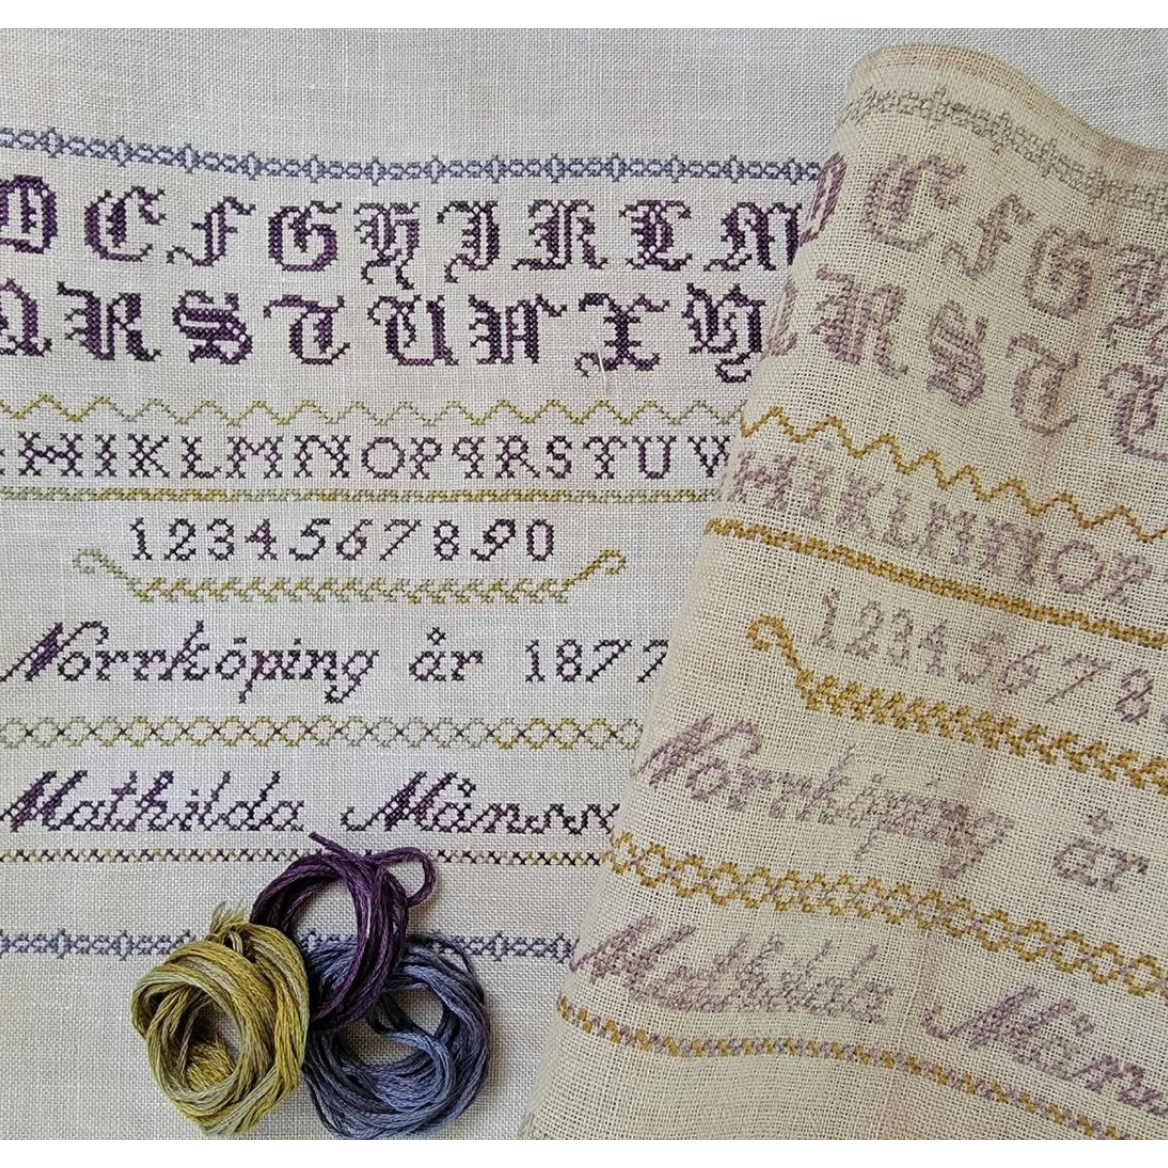 D E F G H J K L M
Q R S T U W X Y
H I K L M N O P Q R S T U V
1 2 3 4 5 6 7 8 9 0
Norrköping år 1877
Mathilda Måns
D E F G H
R S T U
H I K L M N O P
1 2 3 4 5 6 7 8
Norrköping år
Mathilda Måns